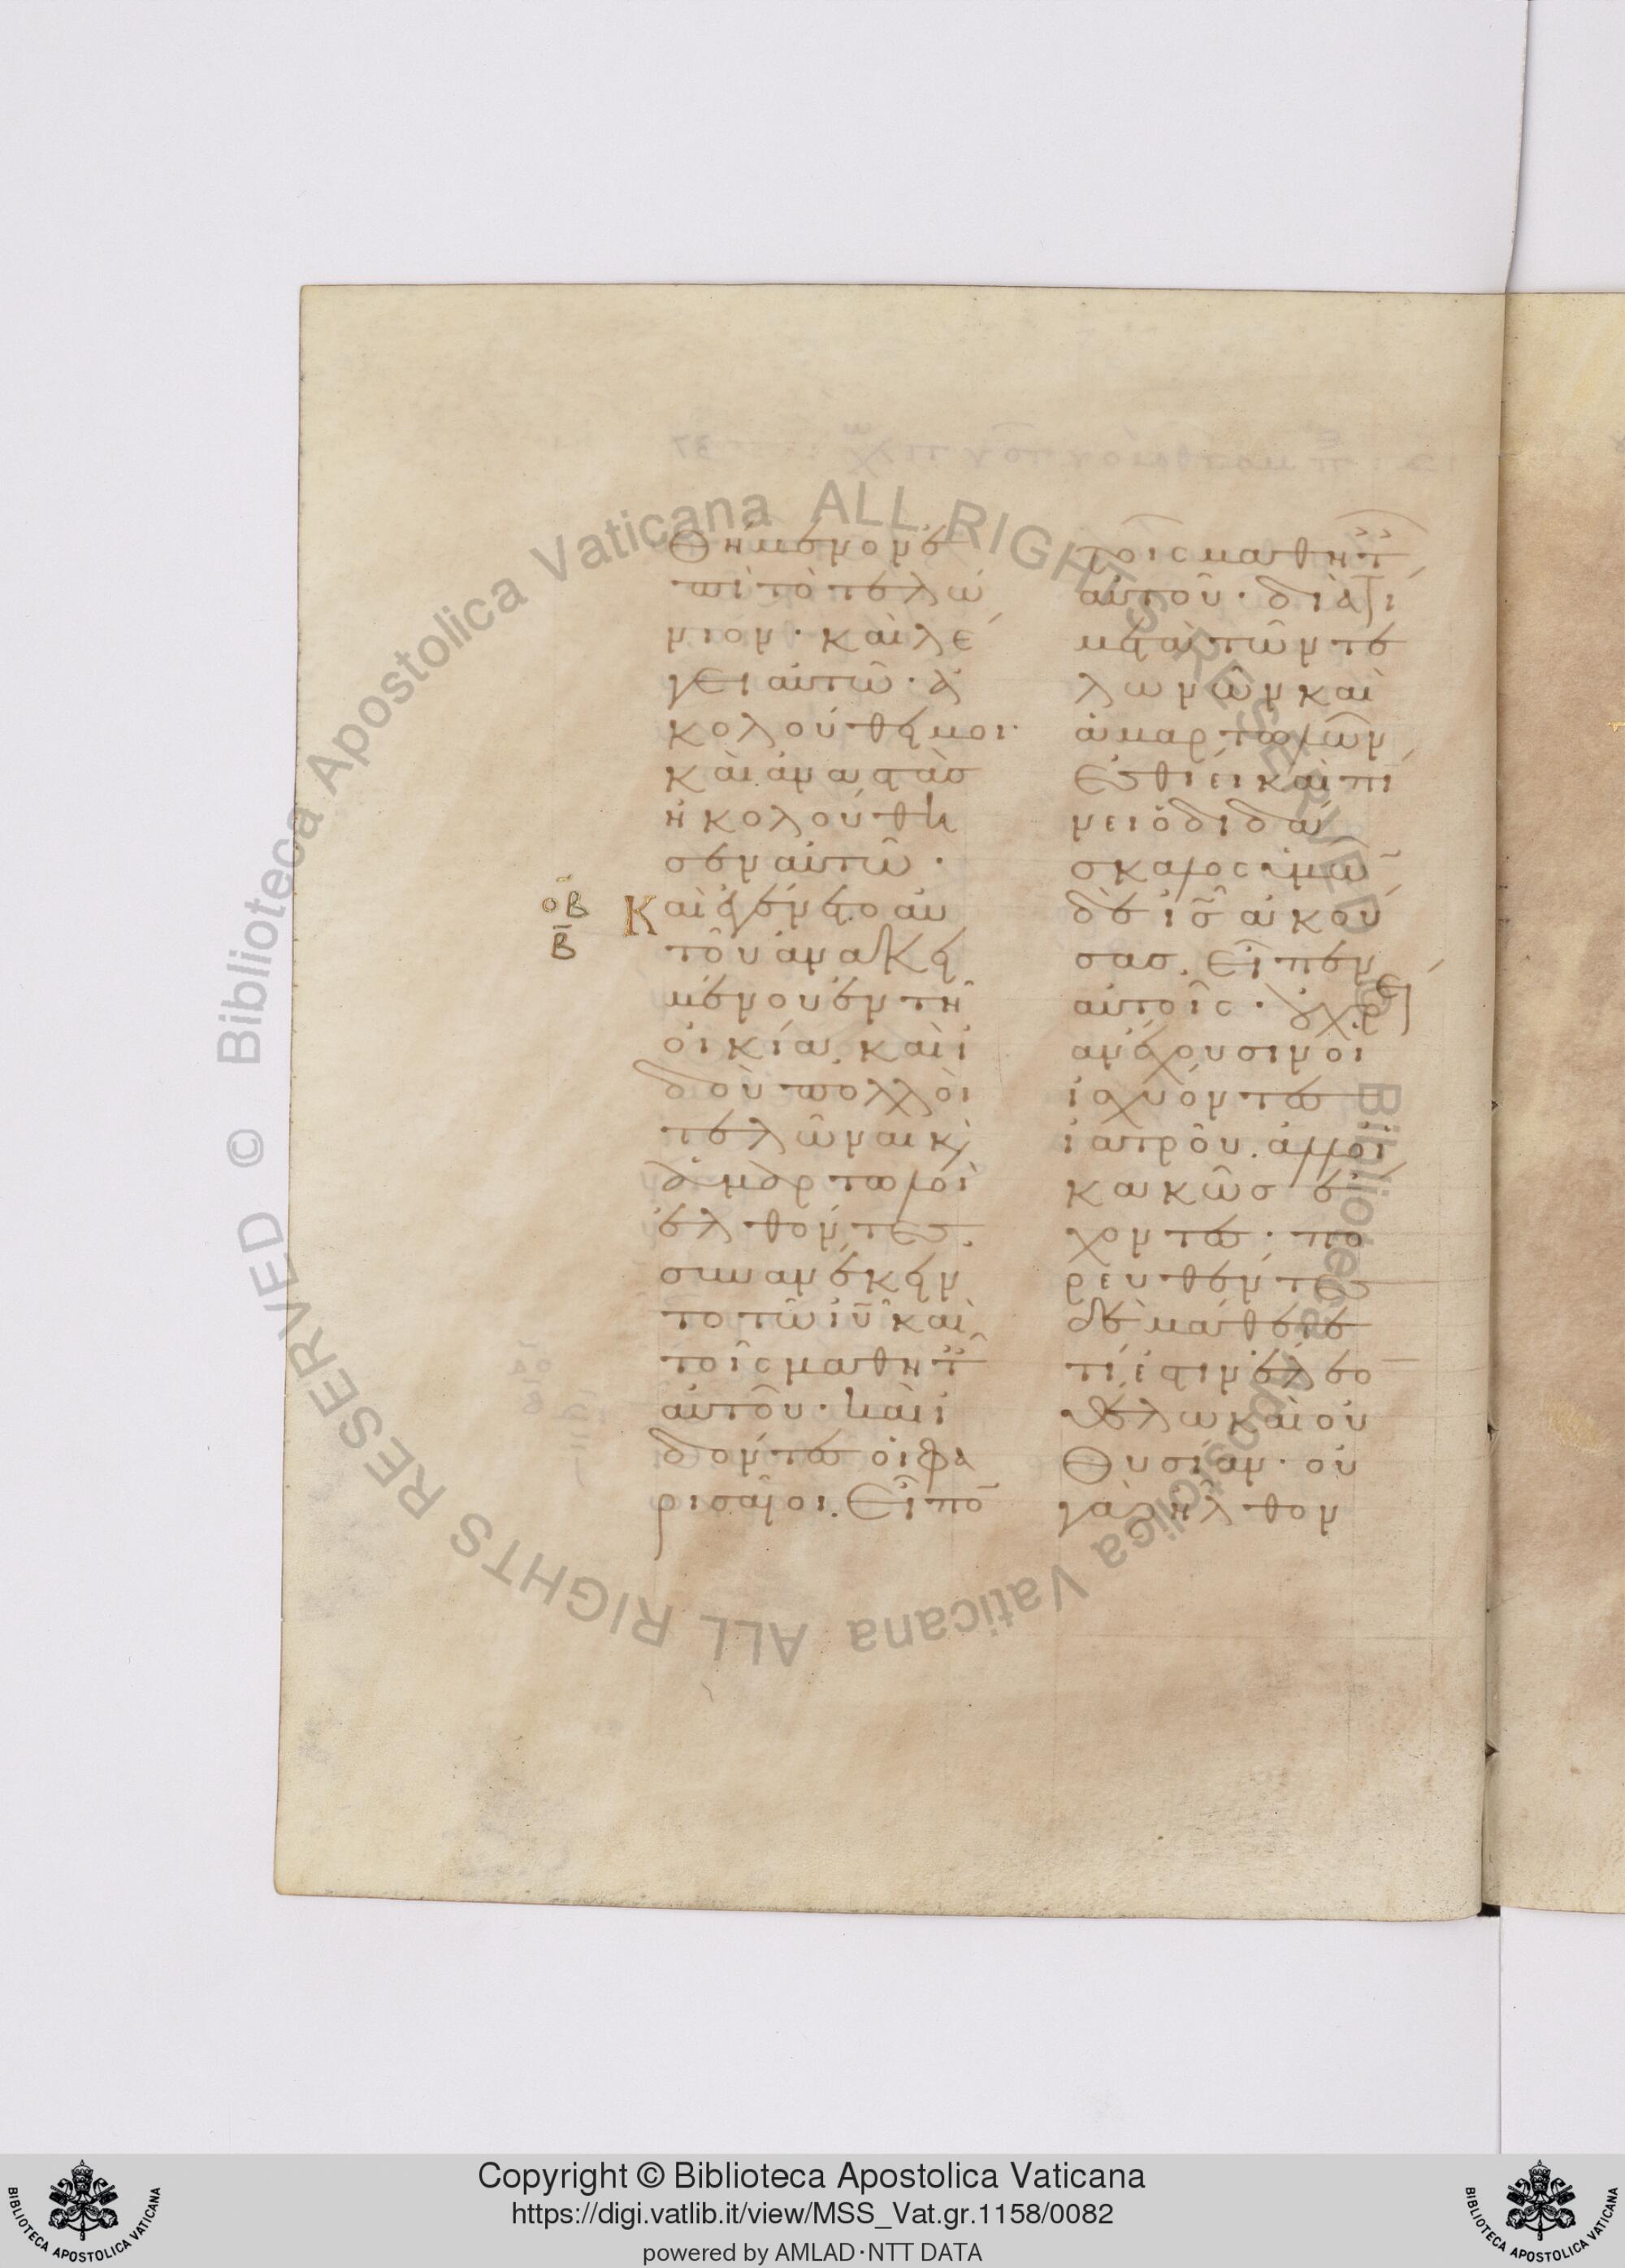 θήμενον ἐ
πὶ τὸ τελώ
νιον· καὶ λέ
γει αὐτῶ· ἀ
κολούθει μοι·
καὶ ἀναστὰσ
ἠκολούθη
σεν αὐτῶ·
οβ
β
Καὶ ἐγένετο αὐ
τοῦ ἀνακει
μένου ἐν τῆ
οἰκία, καὶ ἰ
δοὺ πολλοὶ
τελῶναι κ
ἁμαρτωλοὶ
ἐλθόντες,
συνανέκειν
το τῶ ιῦ καὶ
τοῖς μαθητ
αὐτοῦ· καὶ ἰ
δόντες οἱ φα
ρισαῖοι, εἶπο
τοῖς μαθητ
αὐτοῦ· διατί
μετὰ τῶν τε
λωνῶν καὶ
ἁμαρτωλῶν
ἐσθίει καὶ πί
νει ὁ διδά
σκαλος ὑμῶ
ὁ δὲ ις ἀκού
σασ, εἶπεν
αὐτοῖς· οὐ χρεί
αν ἔχουσιν οἱ
ἰσχύοντες
ἰατροῦ, ἀλλ οἱ
κακῶσ ἔ
χοντες· πο
ρευθέντες
δὲ μάθετε
τί ἐστιν ἔλεο
θέλω καὶ οὐ
θυσίαν· οὐ
γὰρ ἦλθον
Copyright © Biblioteca Apostolica Vaticana
https://digi.vatlib.it/view/MSS_Vat.gr.1158/0082
powered by AMLAD·NTT DATA
BIBLIOTECA APOSTOLICA VATICANA
BIBLIOTECA APOSTOLICA VATICANA
© Biblioteca Apostolica Vaticana ALL RIGHTS RESERVED
Biblioteca Apostolica Vaticana ALL RIGHTS RESERVED